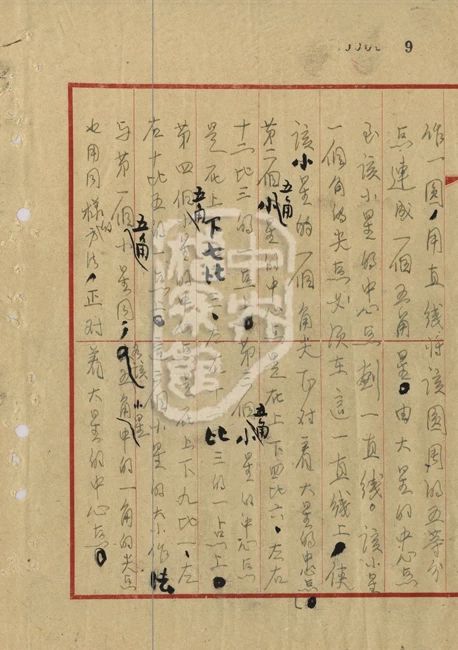 9
作一圆，用直线将该圆周的五等分
点连成一个五角星。由大星的中心点
到该小星的中心点划一直线。该小星
一个角的尖点必须在这一直线上，使
该小星的一个角尖正对着大星的中心点。
第二个小五角星的中心点是在上下四比六、左右
十二比三的一点上。第三个小五角星的中心点
是在上下七比三、左右十二比三的一点上。
第四个小五角星的中心点是在上下九比一、左
右十比五的一点上。这三个小星的大小作法
与第一个小五角星同，各该小星五角中的一角的尖点
也用同样的方法，正对着大星的中心点。
中央档案馆